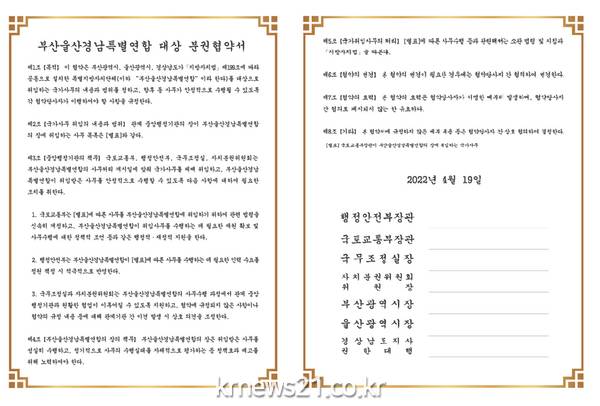 부산울산경남특별연합 대상 분권협약서
제1조 [목적] 이 협약은 부산광역시, 울산광역시, 경상남도가 「지방자치법」 제199조에 따라
공동으로 설치한 특별지방자치단체(이하 "부산울산경남특별연합"이라 한다)를 대상으로
위임하는 국가사무의 내용과 범위를 정하고, 향후 동 사무가 안정적으로 수행될 수 있도록
각 협약당사자가 이행하여야 할 사항을 규정한다.
제2조 [국가사무 위임의 내용과 범위] 관계 중앙행정기관의 장이 부산울산경남특별연합
의 장에 위임하는 사무 목록은 [별표]와 같다.
제3조 [중앙행정기관의 책무] 국토교통부, 행정안전부, 국무조정실, 자치분권위원회는
부산울산경남특별연합의 사무처리 개시일에 맞춰 국가사무를 위해 위임하고, 부산울산경남특
별연합이 위임받은 사무를 안정적으로 수행할 수 있도록 다음 사항에 대하여 필요한
조치를 취한다.
1. 국토교통부는 [별표]에 따른 사무를 부산울산경남특별연합에 위임하기 위하여 관련 법령을
신속히 개정하고, 부산울산경남특별연합이 위임사무를 수행하는 데 필요한 재원 확보 및
사무수행에 대한 정책적 조언 등과 같은 행정적·재정적 지원을 한다.
2. 행정안전부는 [별표]에 따른 사무를 수행하는 데 필요한 인력 수요를
정원 책정 시 적극적으로 반영한다.
3. 국무조정실과 자치분권위원회는 부산울산경남특별연합의 사무수행 과정에서 관계 중앙
행정기관과 원활한 협업이 이루어질 수 있도록 지원하고, 협약에 규정되지 않은 사항이나
협약의 규정 내용 등에 대해 관계기관 간 이견 발생 시 상호 의견을 조정한다.
제4조 [부산울산경남특별연합의 장의 책무] 부산울산경남특별연합의 장은 위임받은 사무를
성실히 수행하고, 정기적으로 사무의 수행실태를 자체적으로 평가하는 등 정책효과 제고를
위해 노력하여야 한다.
제5조 [국가위임사무의 처리] [별표]에 따른 사무수행 등과 관련해서는 소관 법령 및 지침과
「지방자치법」을 따른다.
제6조 [협약의 변경] 본 협약의 변경이 필요한 경우에는 협약당사자 간 협의하여 변경한다.
제7조 [협약의 효력] 본 협약의 효력은 협약당사자가 서명한 때부터 발생하며, 협약당사자
간 합의로 폐지되지 않는 한 유효하다.
제8조 [기타] 본 협약에 규정하지 않은 세부 내용 등은 협약당사자 간 상호 협의하여 결정한다.
[별표] 국토교통부장관이 부산울산경남특별연합의 장에 위임하는 국가사무
2022년 4월 19일
행정안전부장관
국토교통부장관
국무조정실장
자치분권위원회
위원장
부산광역시장
울산광역시장
경상남도지사
권한대행
krnews21.co.kr